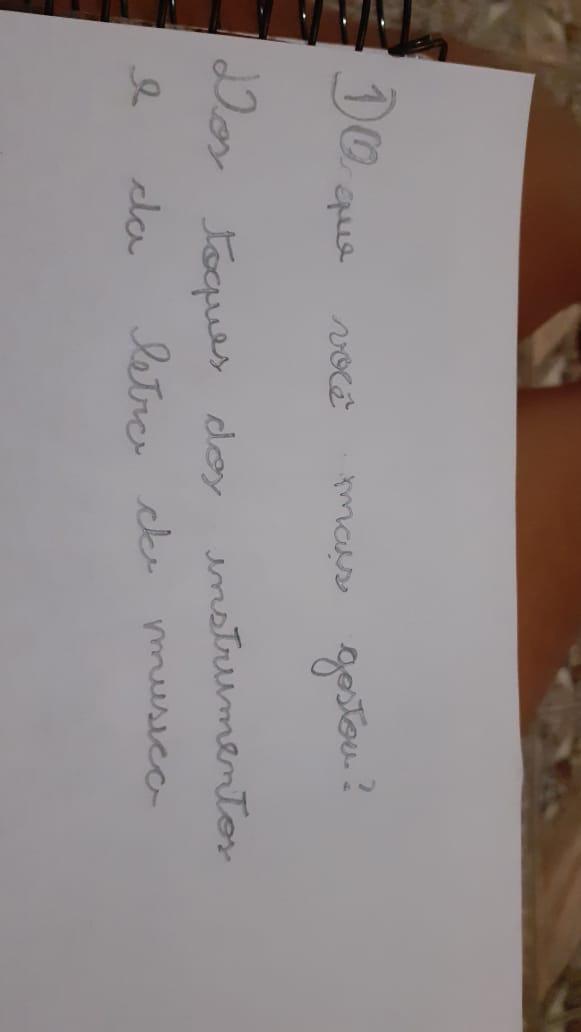 1) O que você mais gostou?
Dos toques dos instrumentos
e da letra da musica